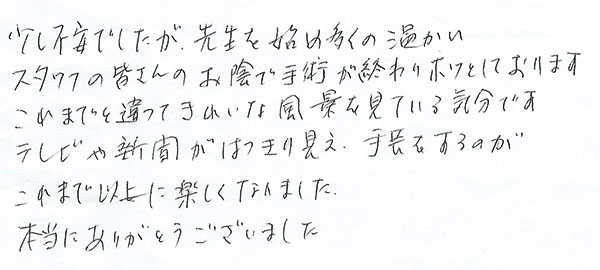 少し不安でしたが、先生を始め多くの温かい
スタッフの皆さんのお陰で手術が終わりホッとしております
これまでと違ってきれいな風景を見ている気分です
テレビや新聞がはっきり見え、手芸をするのが
これまで以上に楽しくなりました。
本当にありがとうございました